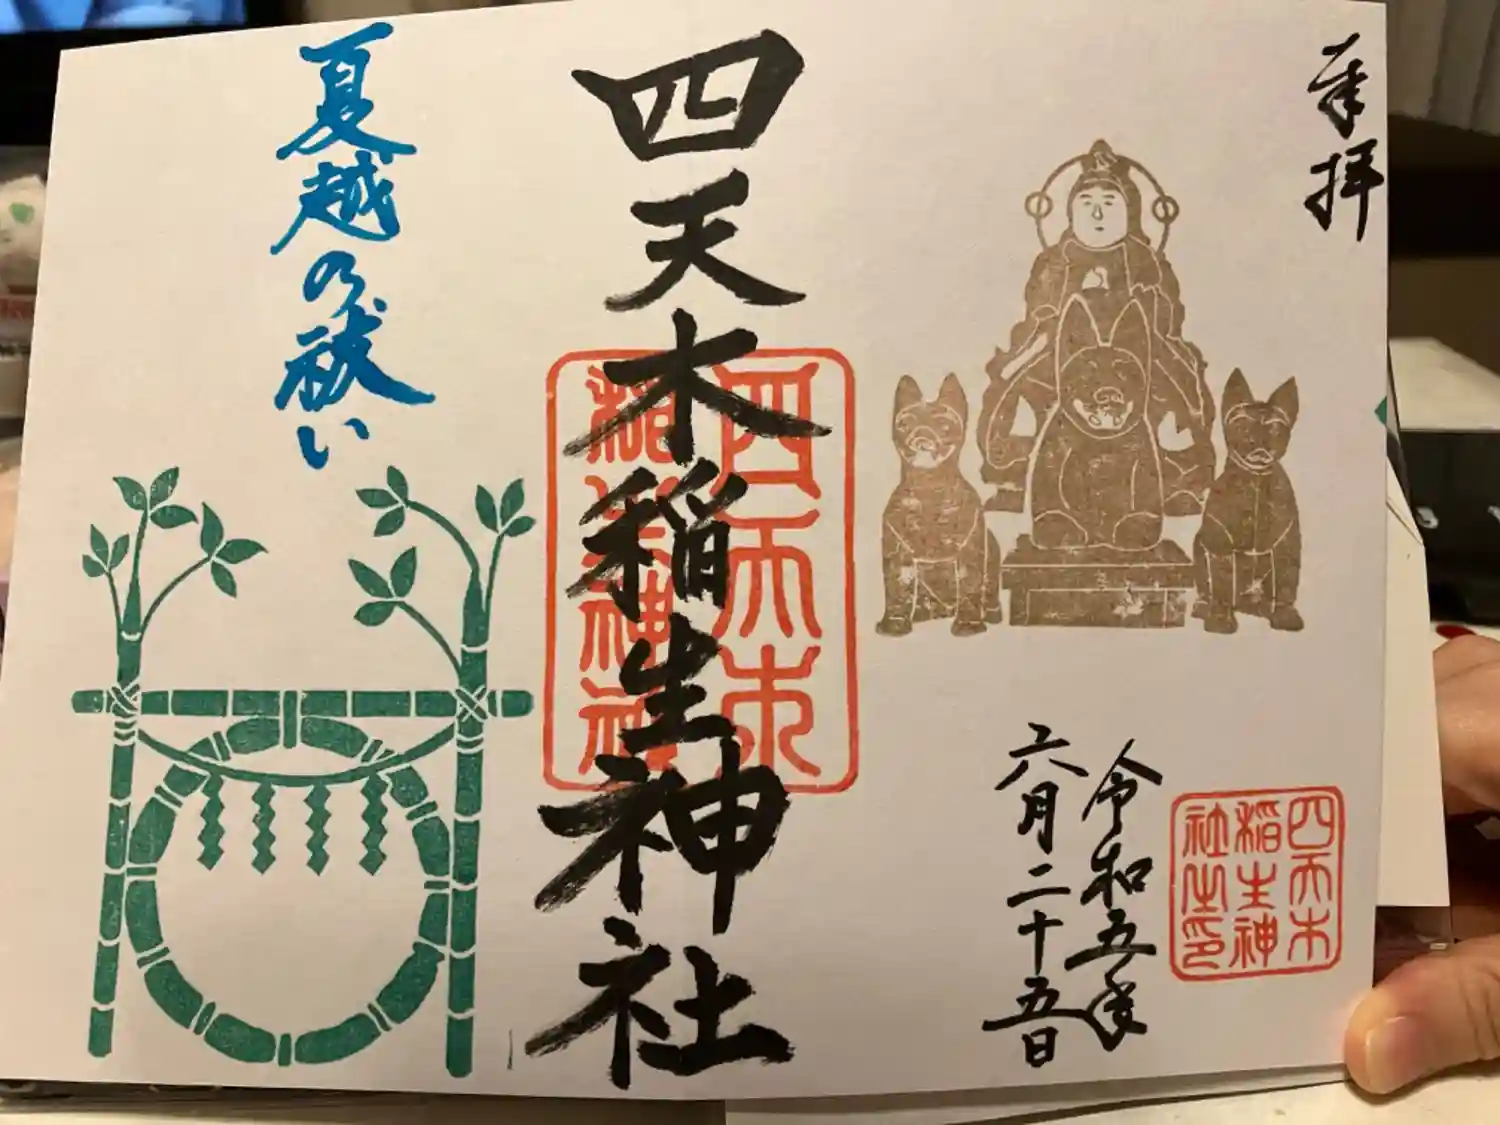 奉拝
令和五年
六月二十五日
四天木
稲生神
社之印
四天木稲生神社
四天木
稲生神社
夏越の祓い